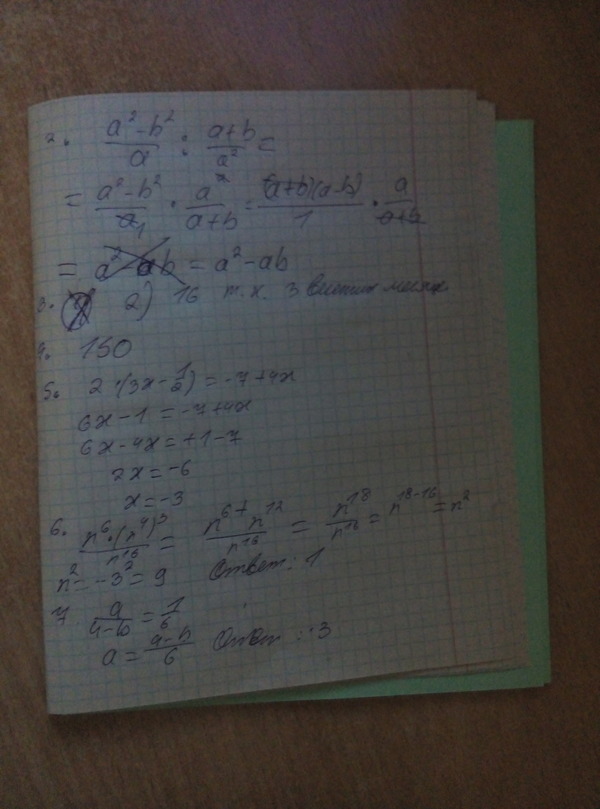 2. (a² - b²)/a : (a+b)/a² =
= (a² - b²)/a₁ · a²/(a+b) = (a+b)(a-b)/1 · a/(a+b)
= a² - ab = a² - ab
3. 2) 16 т.к. 3
4. 150
5. 2·(3x - 1/2) = -7+4x
6x - 1 = -7+4x
6x - 4x = +1-7
2x = -6
x = -3
6. n⁶·(n⁴)³/n¹⁶ = n⁶⁺ n¹²/n¹⁶ = n¹⁸/n¹⁶ = n¹⁸⁻¹⁶ = n²
n² = -3² = 9 Ответ: 1
7. a/(4-b) = 1/6
a = (4-b)/6 Ответ: 3